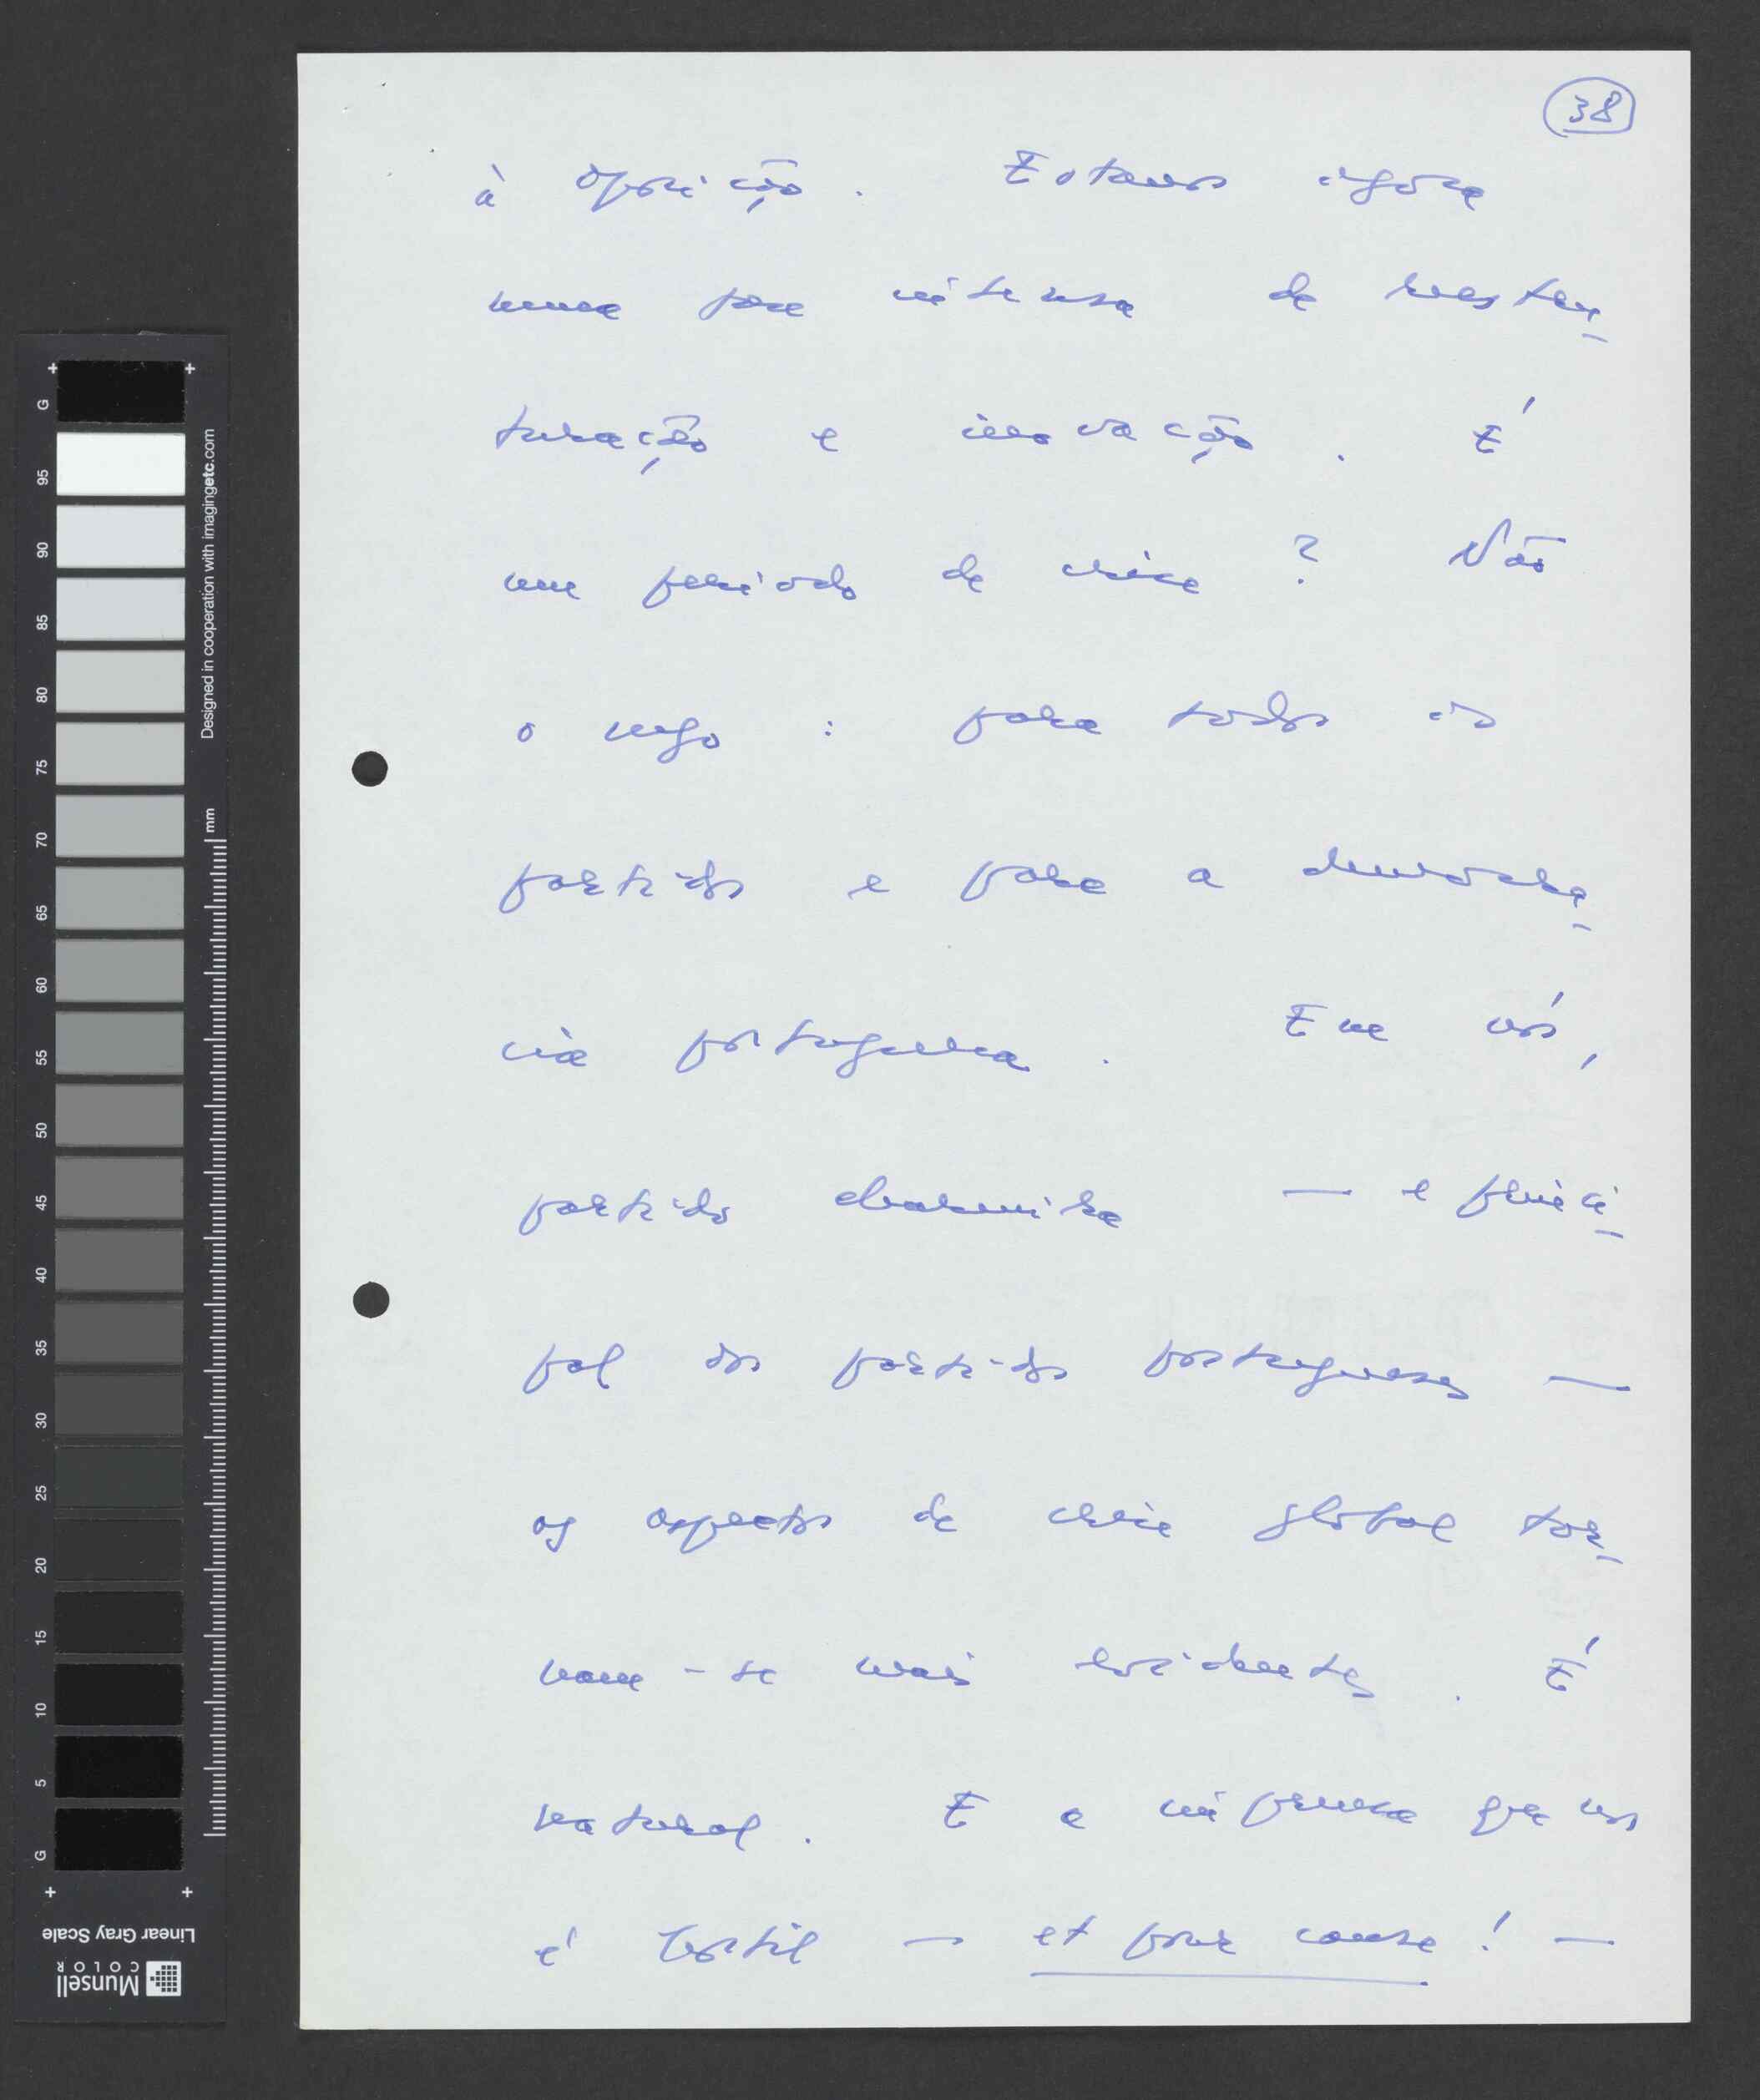 38
à oposição. Estamos agora
numa fase intensa de rees tru_
turação e inovação. É
um período de crise? Não
o nego: para todos os
partidos e para a democra_
cia portuguesa. Em nós,
partido charneira — e princi_
pal dos partidos portugueses —
os aspectos de crise global tor_
nam-se mais evidentes. É
natural. E a imprensa que nos
é hostil — et pour cause! —
G
95
90
85
80
75
70
65
60
55
50
45
40
35
30
25
20
15
10
5
G
Designed in cooperation with imagingetc.com
mm
Linear Gray Scale
Munsell
COLOR